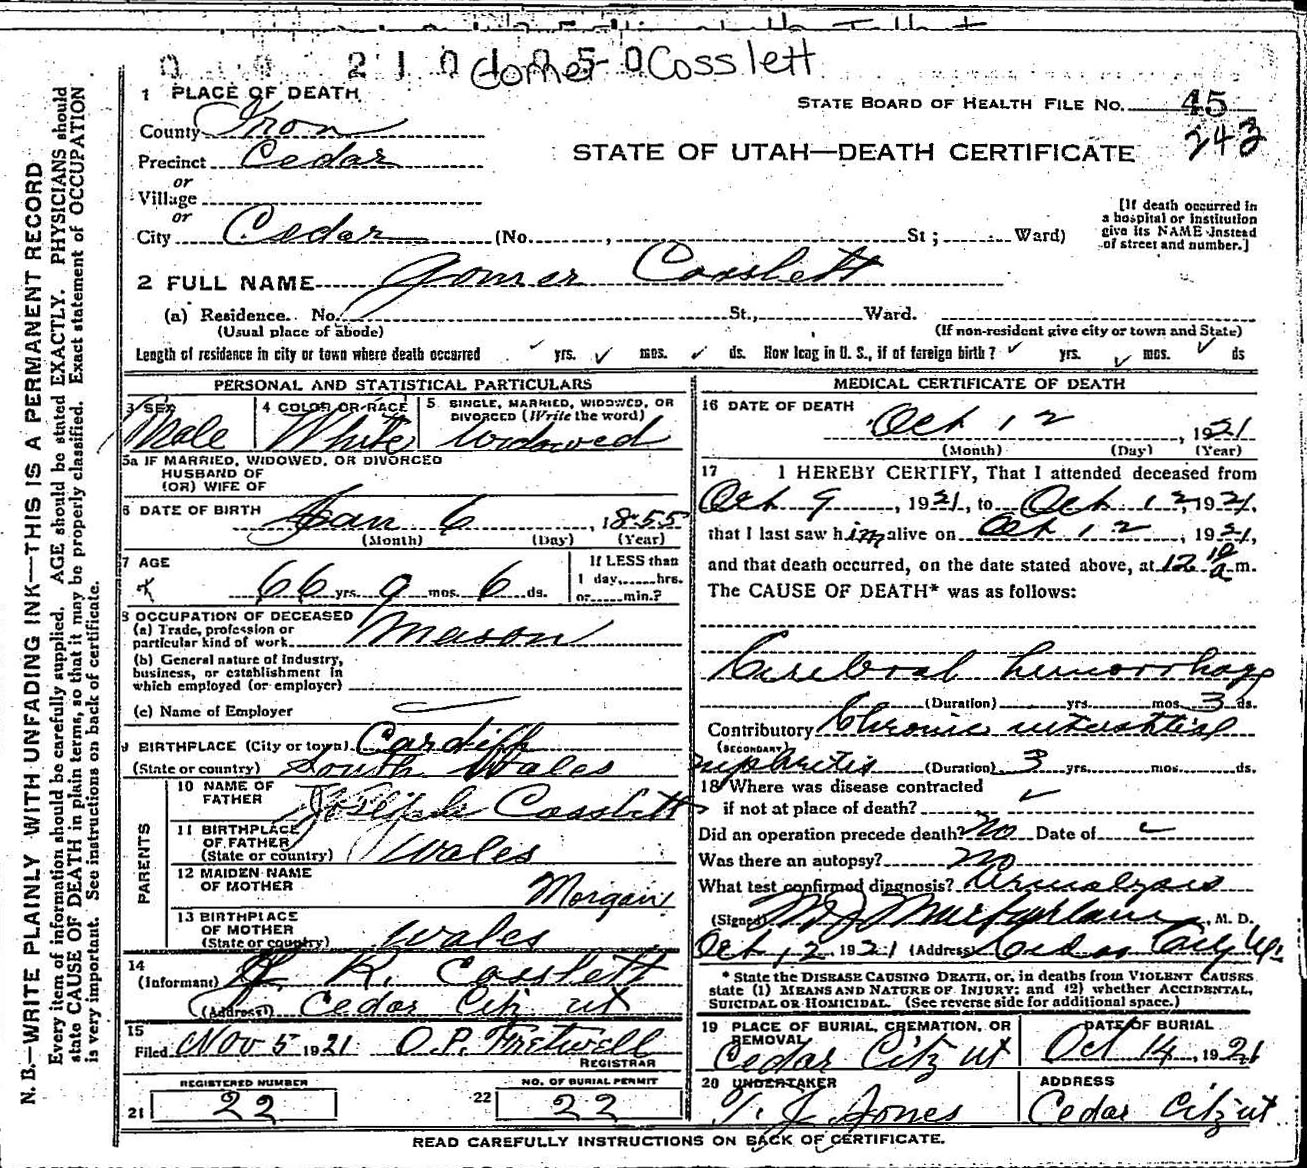 0 0 2 1 0 1 0 5 0
Gomer Cosslett
STATE BOARD OF HEALTH FILE NO. 45
243
STATE OF UTAH—DEATH CERTIFICATE
1 PLACE OF DEATH
County Iron
Precinct Cedar
or
Village
or
City Cedar (No. , St; Ward)
[If death occurred in
a hospital or institution
give its NAME instead
of street and number.]
2 FULL NAME Gomer Cosslett
(a) Residence. No. St., Ward.
(Usual place of abode) (If non-resident give city or town and State)
Length of residence in city or town where death occurred yrs. mos. ds. How long in U. S., if of foreign birth? yrs. mos. ds
PERSONAL AND STATISTICAL PARTICULARS
3 SEX
Male
4 COLOR OR RACE
White
5 SINGLE, MARRIED, WIDOWED, OR
DIVORCED (Write the word)
Widowed
5a IF MARRIED, WIDOWED, OR DIVORCED
HUSBAND OF
(OR) WIFE OF
6 DATE OF BIRTH Jan 6, 1855
(Month) (Day) (Year)
7 AGE
66 yrs. 9 mos. 6 ds.
If LESS than
1 day, hrs.
or min.?
8 OCCUPATION OF DECEASED
(a) Trade, profession or
particular kind of work Mason
(b) General nature of industry,
business, or establishment in
which employed (or employer)
(c) Name of Employer
9 BIRTHPLACE (City or town) Cardiff
(State or country) South Wales
PARENTS
10 NAME OF
FATHER Joseph Cosslett
11 BIRTHPLACE
OF FATHER
(State or country) Wales
12 MAIDEN NAME
OF MOTHER Morgan
13 BIRTHPLACE
OF MOTHER
(State or country) Wales
14
(Informant) J R. Cosslett
(Address) Cedar City ut
15
Filed Nov 5 1921 O.P. Fretwell
REGISTRAR
REGISTERED NUMBER
21 22
NO. OF BURIAL PERMIT
22 22
MEDICAL CERTIFICATE OF DEATH
16 DATE OF DEATH
Oct 12, 1921
(Month) (Day) (Year)
17 I HEREBY CERTIFY, That I attended deceased from
Oct 9, 1921, to Oct 12, 1921,
that I last saw him alive on Oct 12, 1921,
and that death occurred, on the date stated above, at 12 10 a m.
The CAUSE OF DEATH* was as follows:
Cerebral hemorrhage
(Duration) yrs. mos. 3 ds.
Contributory Chronic interstitial
(SECONDARY)
nephritis (Duration) 3 yrs. mos. ds.
18 Where was disease contracted
if not at place of death?
Did an operation precede death? No Date of
Was there an autopsy? No
What test confirmed diagnosis? Urinalysis
(Signed) M J Macfarlane, M. D.
Oct 12 1921 (Address) Cedar City Ut.
* State the DISEASE CAUSING DEATH, or, in deaths from VIOLENT CAUSES
state (1) MEANS AND NATURE OF INJURY; and (2) whether ACCIDENTAL,
SUICIDAL OR HOMICIDAL. (See reverse side for additional space.)
19 PLACE OF BURIAL, CREMATION, OR
REMOVAL
Cedar City ut
DATE OF BURIAL
Oct 14, 1921
20 UNDERTAKER
T. J. Jones
ADDRESS
Cedar City ut
READ CAREFULLY INSTRUCTIONS ON BACK OF CERTIFICATE.
N. B.—WRITE PLAINLY WITH UNFADING INK—THIS IS A PERMANENT RECORD
Every item of information should be carefully supplied. AGE should be stated EXACTLY. PHYSICIANS should
state CAUSE OF DEATH in plain terms, so that it may be properly classified. Exact statement of OCCUPATION
is very important. See instructions on back of certificate.